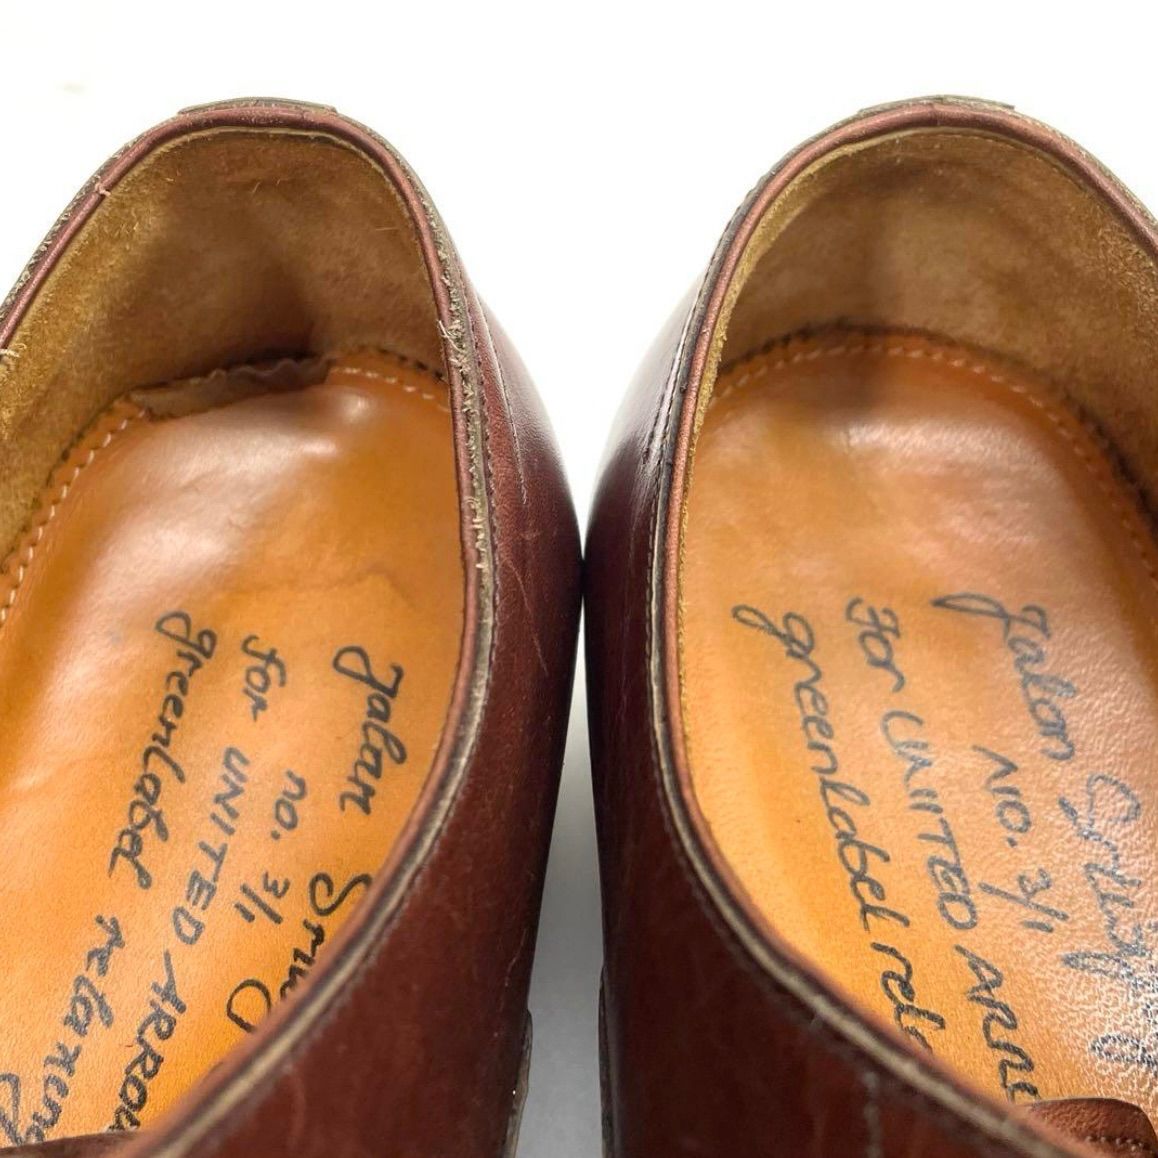 Jalan Sriwijaya
no. 3/1
for UNITED ARROW
greenlabel relaxing
Jalan Sriwij
NO. 3/1
For UNITED ARR
greenlabel rel